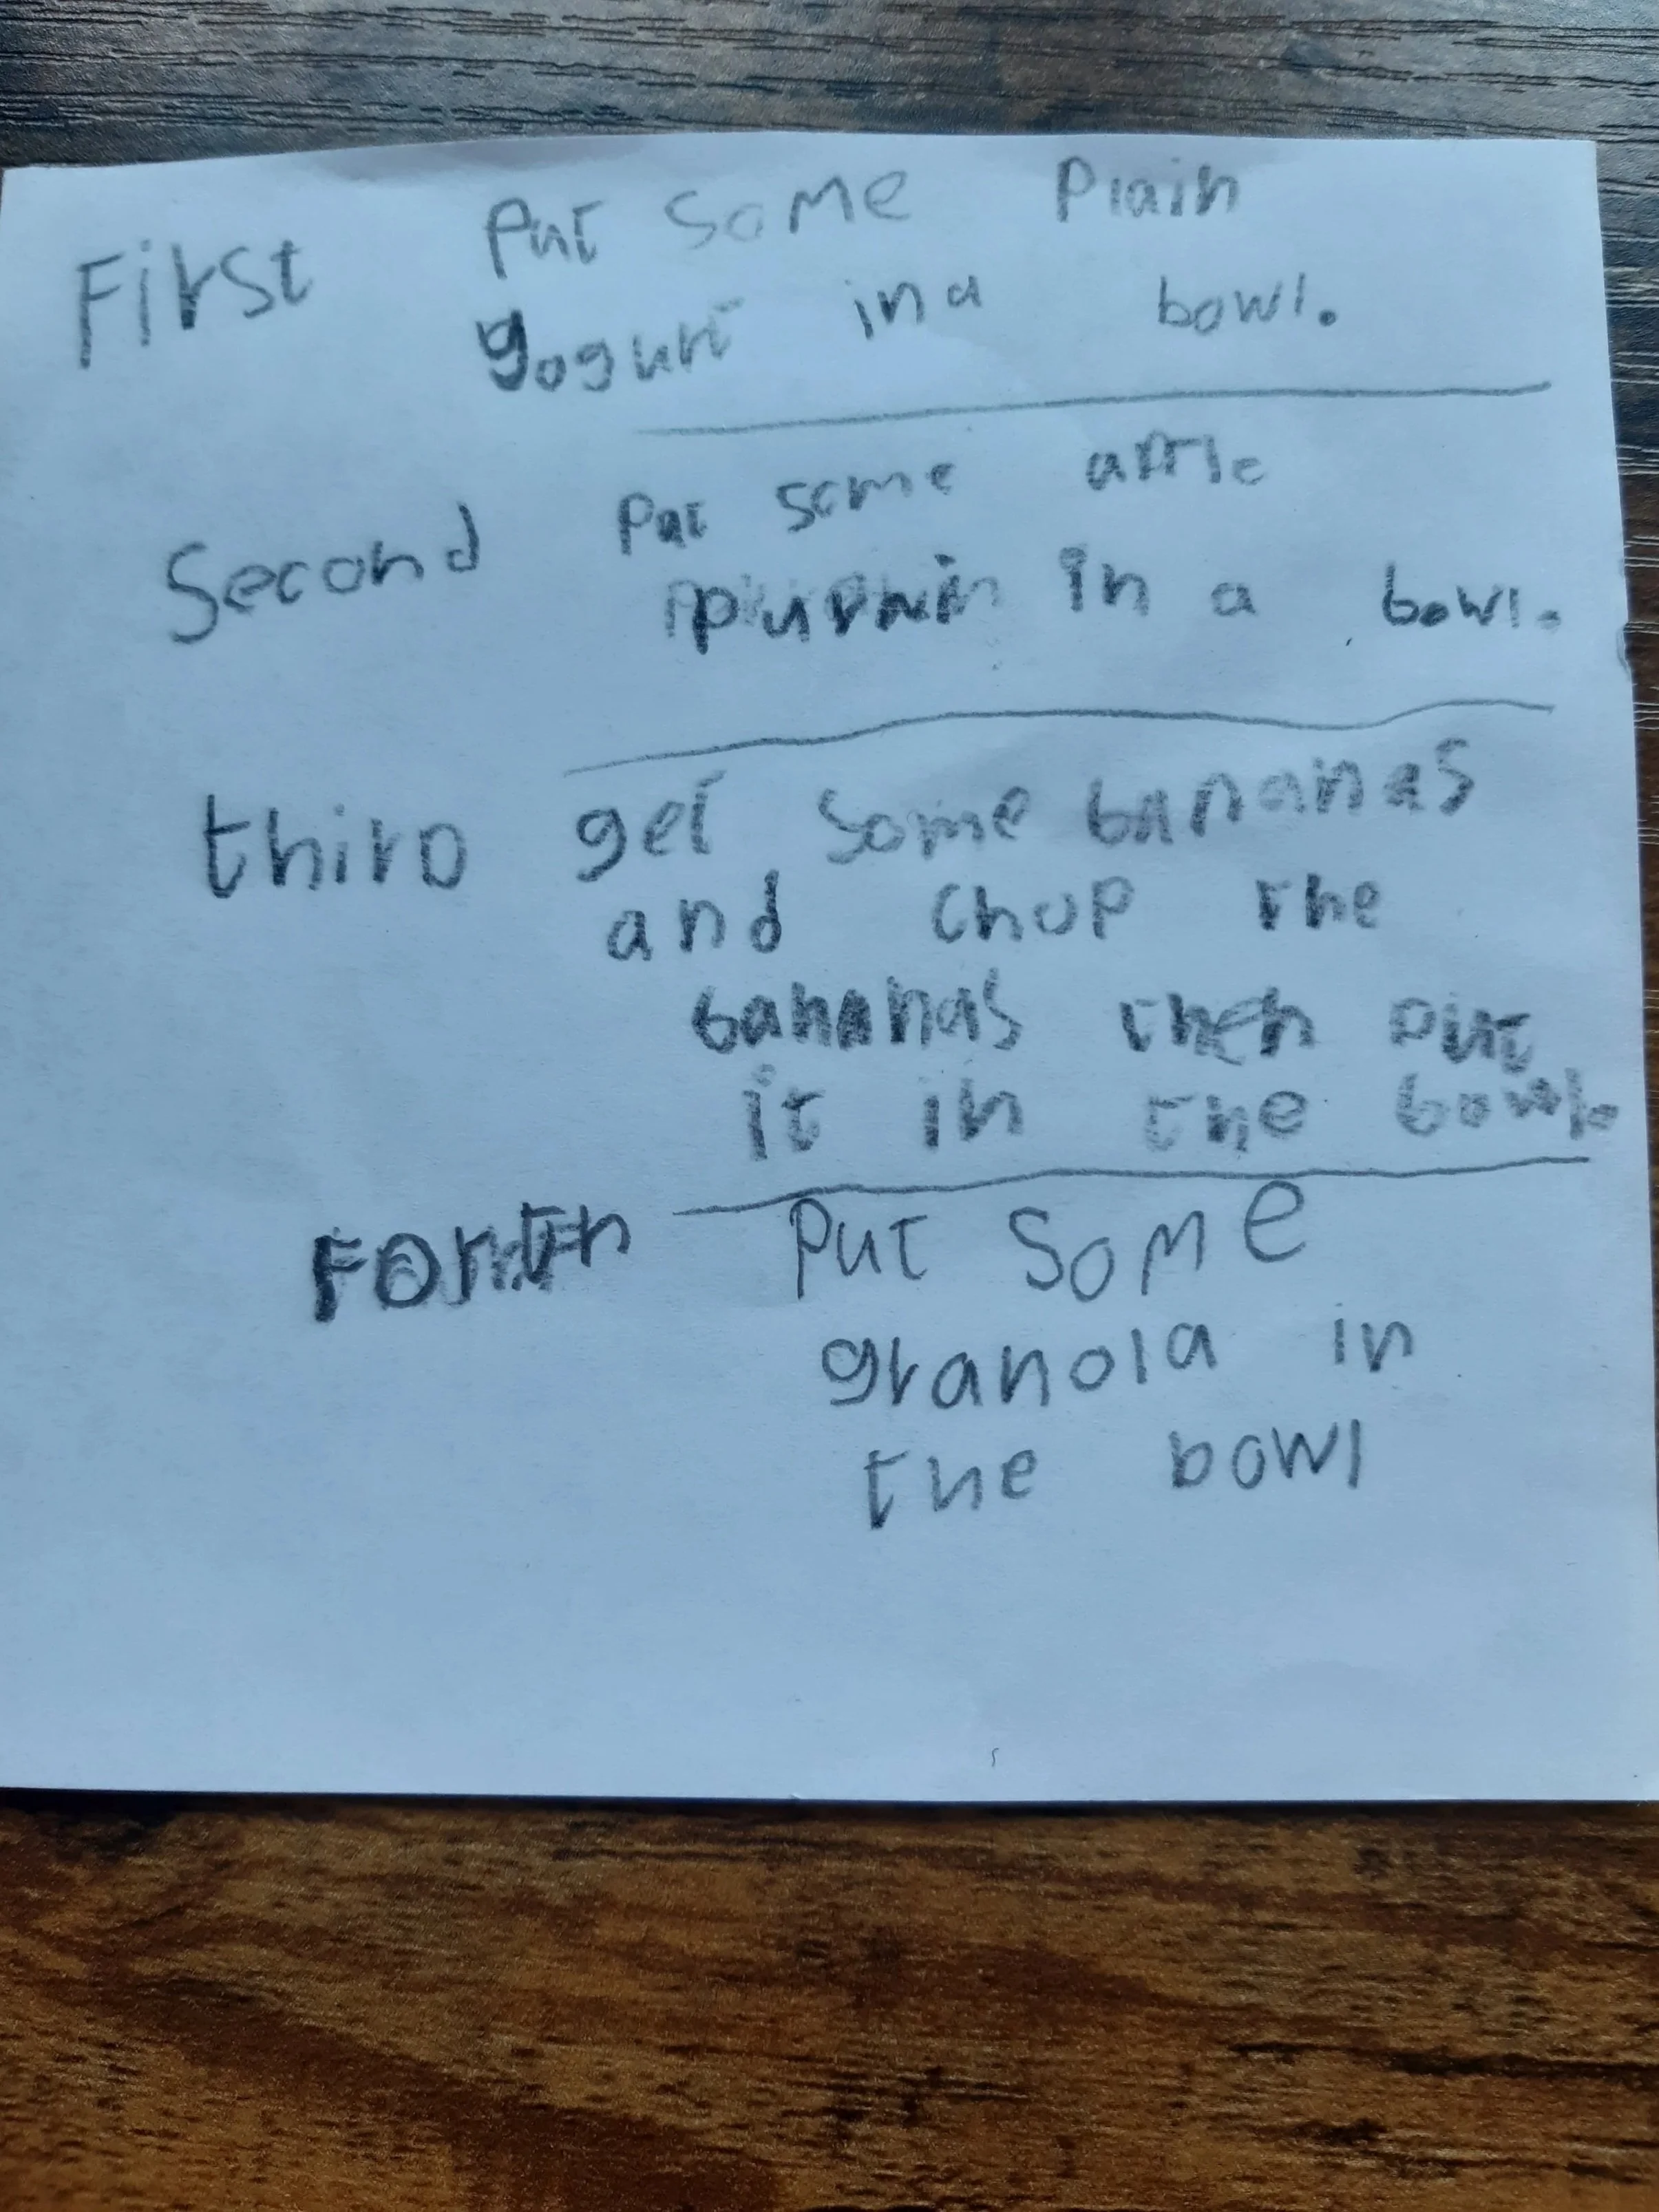 First Put Some Plain
yogurt in a bowl.
Second Put some apple
in a bowl.
third get some bananas
and chop the
bananas then put
it in the bowl.
Forth Put Some
granola in
the bowl